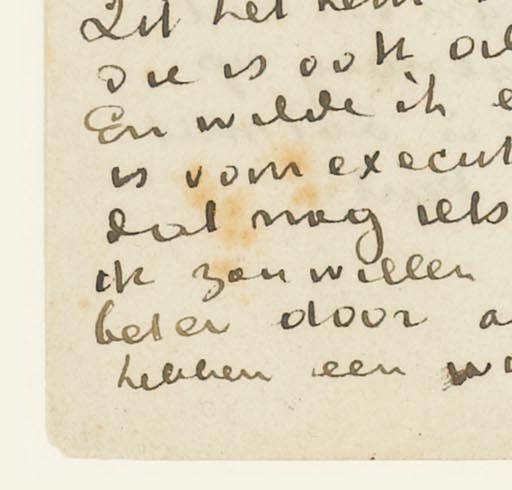 Zit het hem
die is ook al
En wilde ik e
is vom execut
dat nog iets
ik zou willen
beter door a
hebben een wa